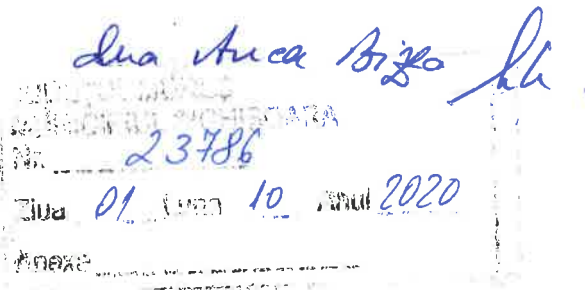 dna Anca Bizgo
Nr. 23786
Ziua 01 Luna 10 Anul 2020
Anexe